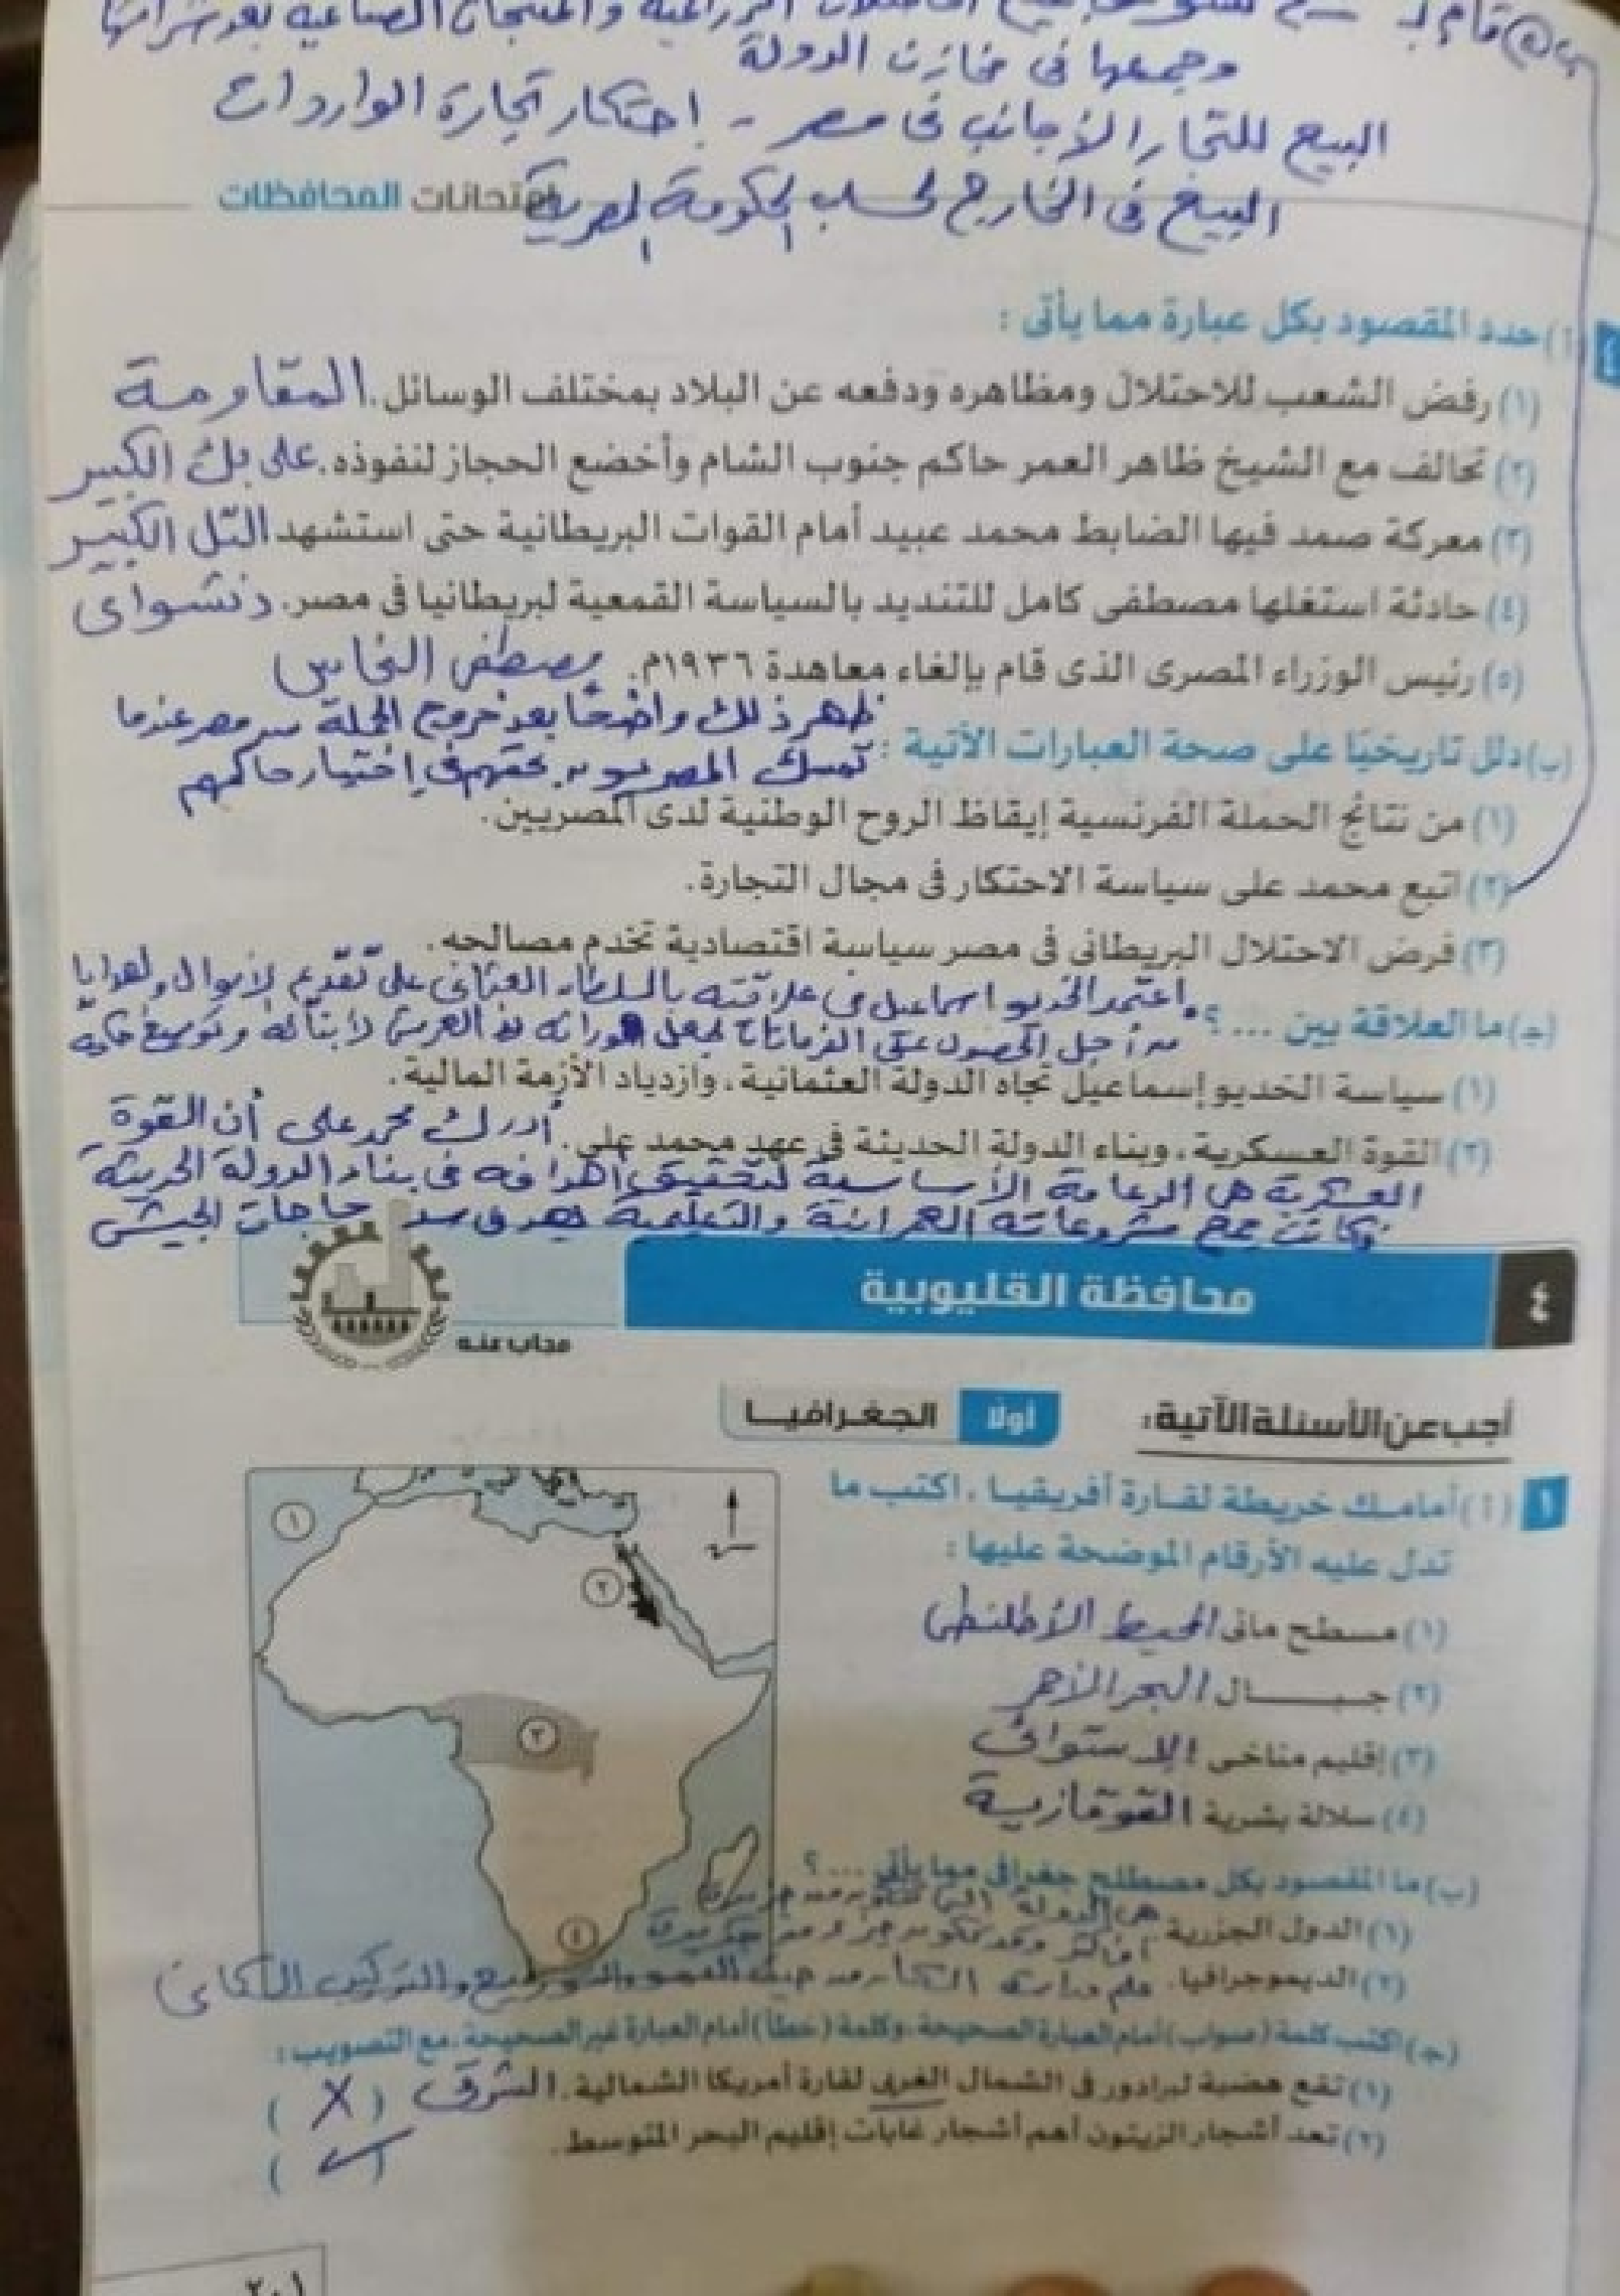 وجمعها فى مخازن الدولة
البيع للتجار الأجانب فى مصر - احتكار تجارة الواردات
البيع فى الخارج لحساب الحكومة المصرية
امتحانات المحافظات
٤ (أ) حدد المقصود بكل عبارة مما يأتى :
(١) رفض الشعب للاحتلال ومظاهره ودفعه عن البلاد بمختلف الوسائل. المقاومة
(٢) تحالف مع الشيخ ظاهر العمر حاكم جنوب الشام وأخضع الحجاز لنفوذه. على بك الكبير
(٣) معركة صمد فيها الضابط محمد عبيد أمام القوات البريطانية حتى استشهد التل الكبير
(٤) حادثة استغلها مصطفى كامل للتنديد بالسياسة القمعية لبريطانيا فى مصر. دنشواى
(٥) رئيس الوزراء المصرى الذى قام بإلغاء معاهدة ١٩٣٦م. مصطفى النحاس
ظهر ذلك واضحًا بعد خروج الحملة من مصر عندما
(ب) دلل تاريخيًا على صحة العبارات الآتية : تمسك المصريون بحقهم فى اختيار حاكمهم
(١) من نتائج الحملة الفرنسية إيقاظ الروح الوطنية لدى المصريين.
(٢) اتبع محمد على سياسة الاحتكار فى مجال التجارة.
(٣) فرض الاحتلال البريطانى فى مصر سياسة اقتصادية تخدم مصالحه.
اعتمد الخديو اسماعيل فى علاقته بالسلطان العثمانى على تقديم الأموال والهدايا
(جـ) ما العلاقة بين ... ؟ من أجل الحصول على الفرمانات لجعل وراثة العرش لأبنائه وتوسيع
(١) سياسة الخديو إسماعيل تجاه الدولة العثمانية، وازدياد الأزمة المالية.
(٢) القوة العسكرية، وبناء الدولة الحديثة فى عهد محمد على. أدرك محمد على أن القوة
العسكرية هى الدعامة الأساسية لتحقيق أهدافه فى بناء الدولة الحديثة
وكانت جميع مشروعاته العمرانية والتعليمية بهدف سد حاجات الجيش
محافظة القليوبية
مجاب عنه
أجب عن الأسئلة الآتية:
أولًا الجغرافيا
١ (أ) أمامك خريطة لقارة أفريقيا، اكتب ما
تدل عليه الأرقام الموضحة عليها :
(١) مسطح مائى المحيط الأطلنطى
(٢) جبال البحر الأحمر
(٣) إقليم مناخى الاستوائى
(٤) سلالة بشرية القوقازية
١
٢
٣
٤
(ب) ما المقصود بكل مصطلح جغرافى مما يأتى ... ؟
(١) الدول الجزرية هى الدولة التى تتكون من جزيرة
أو أكثر وقد تكون جزء من جزيرة
(٢) الديموجرافيا. علم دراسة السكان من حيث النمو والتوزيع والتركيب السكانى
(جـ) اكتب كلمة (صواب) أمام العبارة الصحيحة، وكلمة (خطأ) أمام العبارة غير الصحيحة، مع التصويب :
(١) تقع هضبة لبرادور فى الشمال الغربى لقارة أمريكا الشمالية. الشرقى ( X )
(٢) تعد أشجار الزيتون أهم أشجار غابات إقليم البحر المتوسط. ( ✓ )
٢٠١